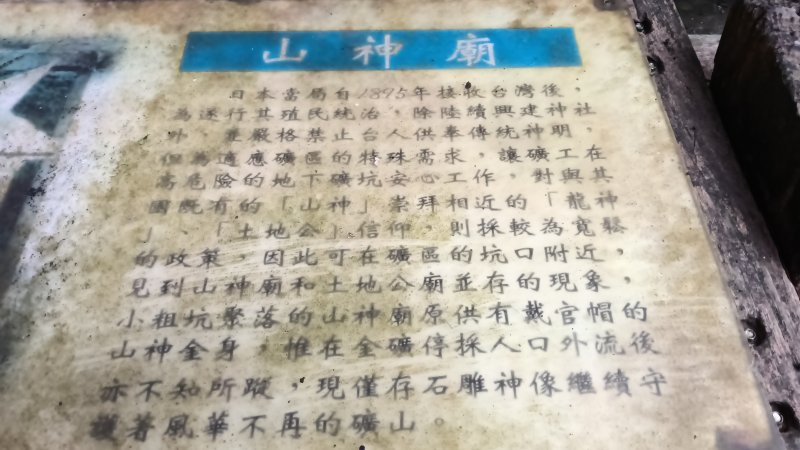 山神廟
日本當局自1895年接收台灣後,
為遂行其殖民統治,除陸續興建神社
外 並嚴格禁止台人供奉傳統神明,
但為適應礦區的特殊需求,讓礦工在
高危險的地下礦坑安心工作,對與其
國既有的「山神」崇拜相近的「龍神
」、「土地公」信仰,則採較為寬鬆
的政策,因此可在礦區的坑口附近,
見到山神廟和土地公廟並存的現象,
小粗坑聚落的山神廟原供有戴官帽的
山神金身,惟在金礦停採人口外流後
亦不知所蹤,現僅存石雕神像繼續守
護著風華不再的礦山。